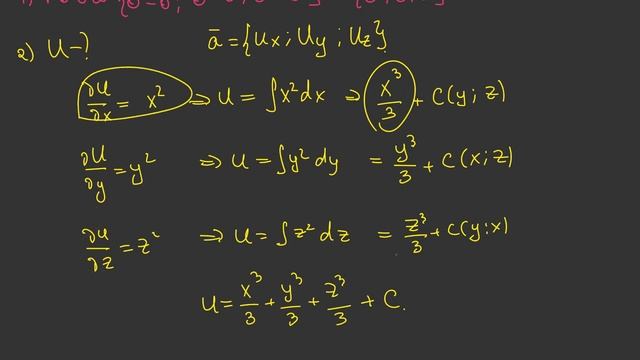 2) U-? ā = {Ux ; Uy ; Uz}
∂U/∂x = x² ⇒ U = ∫x²dx ⇒ x³/3 + C(y ; z)
∂U/∂y = y² ⇒ U = ∫y²dy = y³/3 + C(x ; z)
∂u/∂z = z² ⇒ U = ∫z²dz = z³/3 + C(y ; x)
U = x³/3 + y³/3 + z³/3 + C.